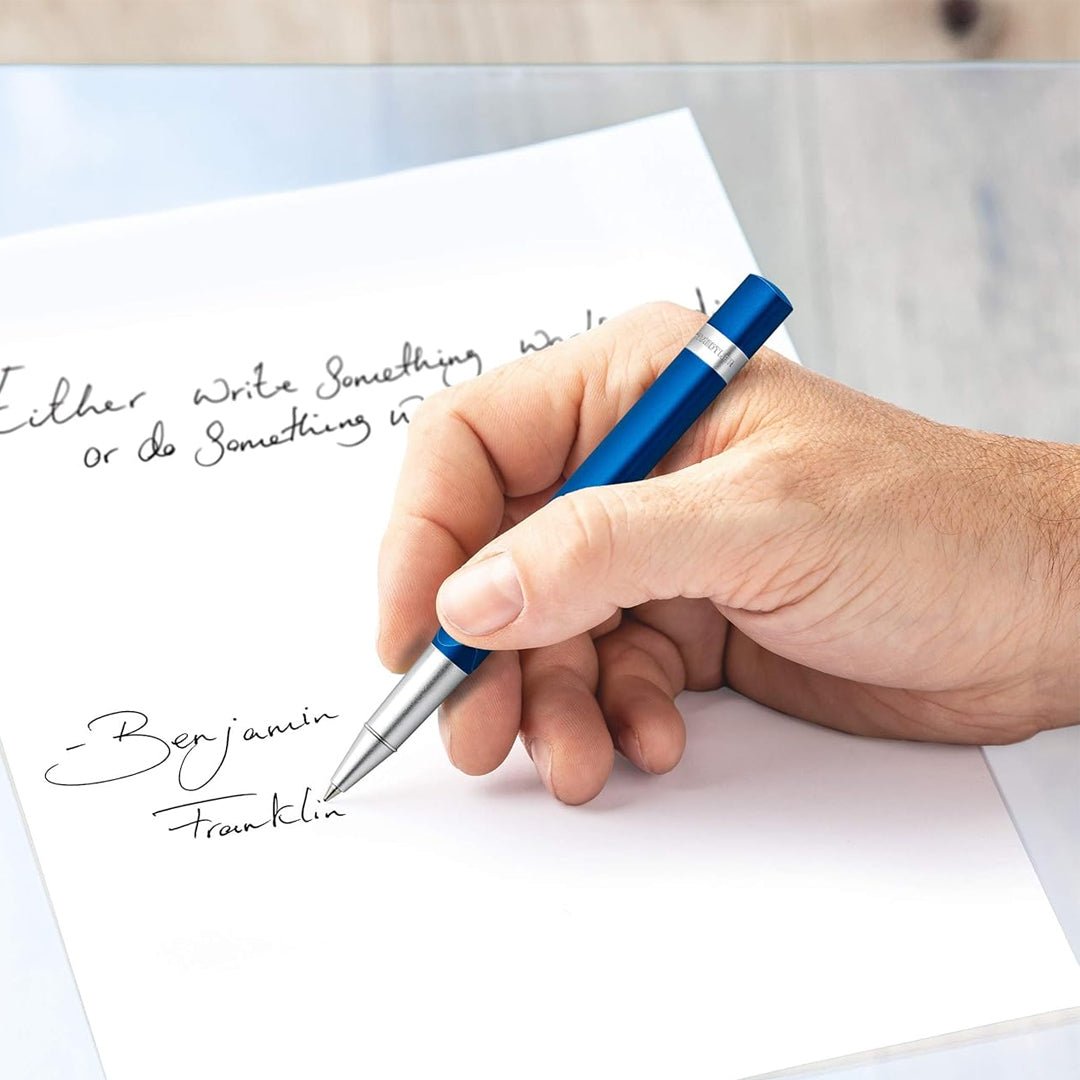 Either write something
or do something
- Benjamin
Franklin